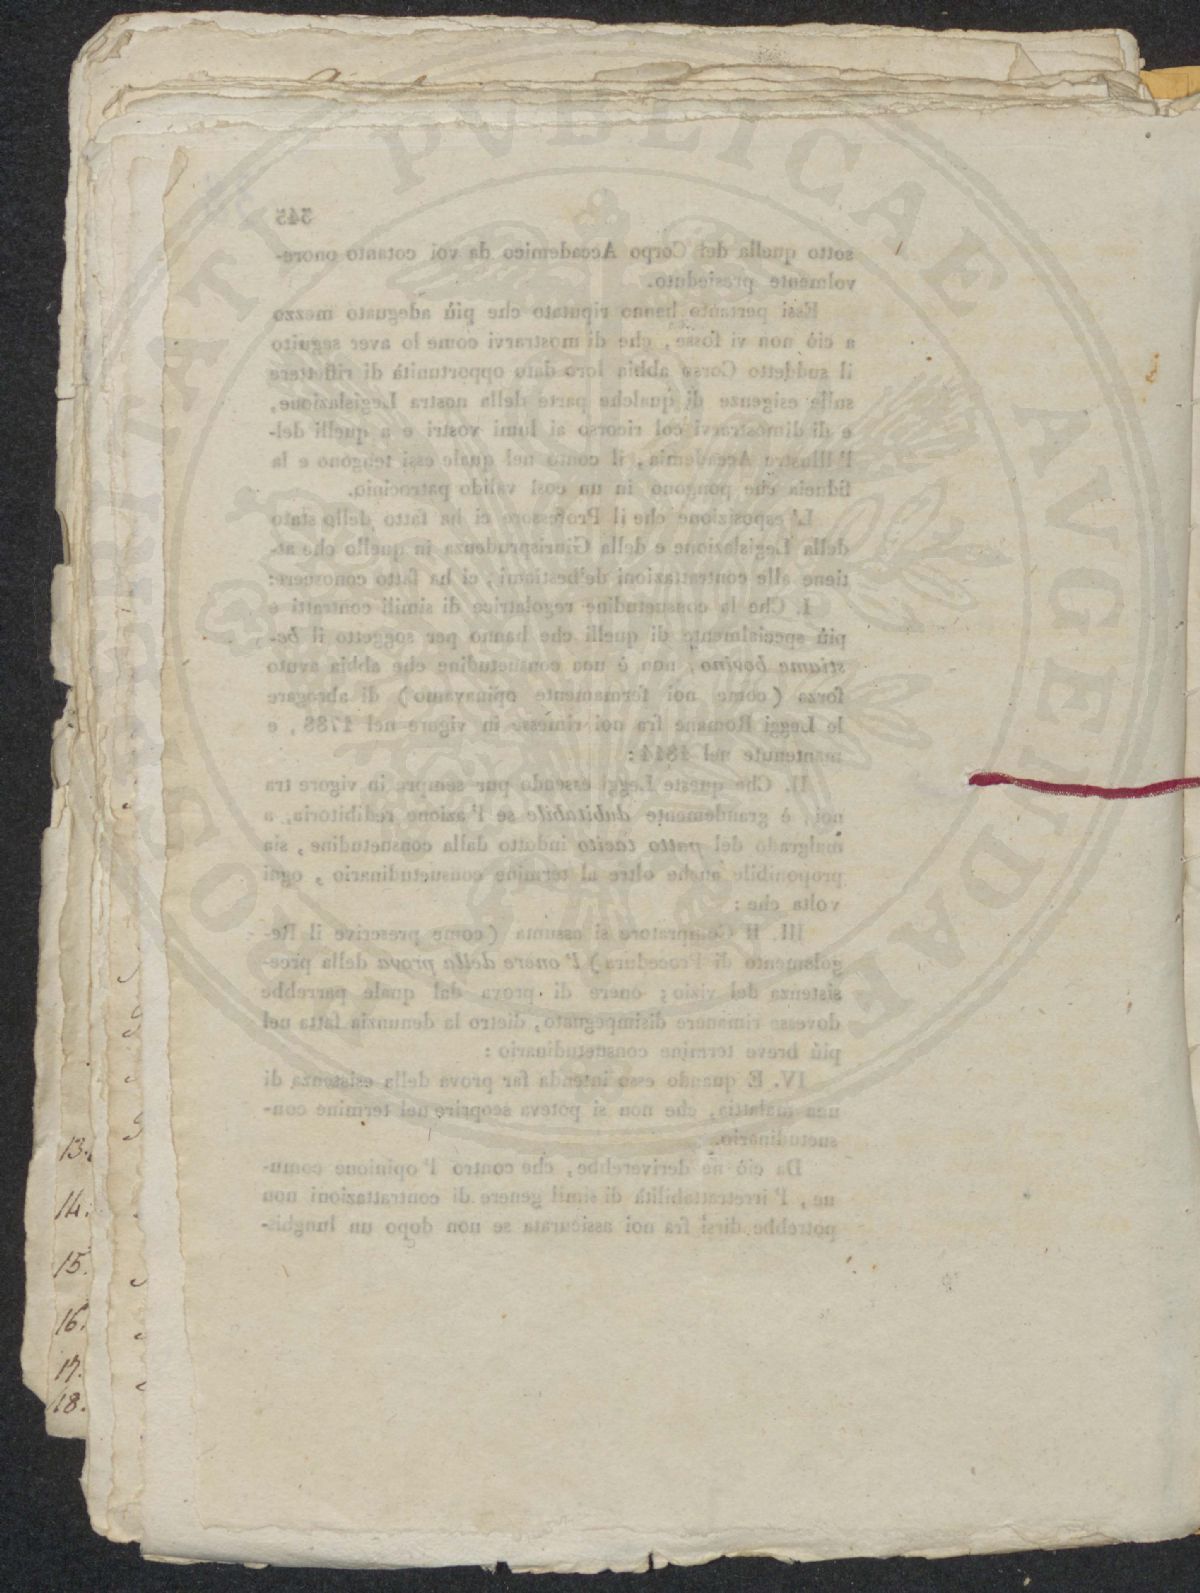 345
sotto quella del Corpo Accademico da voi cotanto onore-
volmente presieduto.
Essi pertanto hanno riputato che più adeguato mezzo
a ciò non vi fosse, che di mostrarvi come lo aver seguito
il suddetto Corso abbia loro dato opportunità di riflettere
sulle esigenze di qualche parte della nostra Legislazione,
e di dimostrarvi col ricorso ai lumi vostri e a quelli del-
l' Illustre Accademia, il conto nel quale essi tengono e la
fiducia che pongono in un così valido patrocinio.
L' esposizione che il Professore ci ha fatto dello stato
della Legislazione e della Giurisprudenza in quello che at-
tiene alle contrattazioni de' bestiami, ci ha fatto conoscere:
I. Che la consuetudine regolatrice di simili contratti e
più specialmente di quelli che hanno per soggetto il be-
stiame bovino, non è una consuetudine che abbia avuto
forza (come noi fermamente opinavamo) di abrogare
le Leggi Romane fra noi rimesse in vigore nel 1788, e
mantenute nel 1814:
II. Che queste Leggi essendo pur sempre in vigore tra
noi, è grandemente dubitabile se l' azione redibitoria, a
malgrado del patto tacito indotto dalla consuetudine, sia
proponibile anche oltre al termine consuetudinario, ogni
volta che:
III. Il Compratore si assuma (come prescrive il Re-
golamento di Procedura) l' onere della prova della pree-
sistenza del vizio; onere di prova dal quale parrebbe
dovesse rimanere disimpegnato, dietro la denunzia fatta nel
più breve termine consuetudinario:
IV. E quando esso intenda far prova della esistenza di
una malattia, che non si poteva scoprire nel termine con-
suetudinario.
Da ciò ne deriverebbe, che contro l' opinione comu-
ne, l' irretrattabilità di simil genere di contrattazioni non
potrebbe dirsi fra noi assicurata se non dopo un lunghis-
13.
14.
15.
16.
17.
18.
SOCIETATI PUBLICAE AVGENDAE